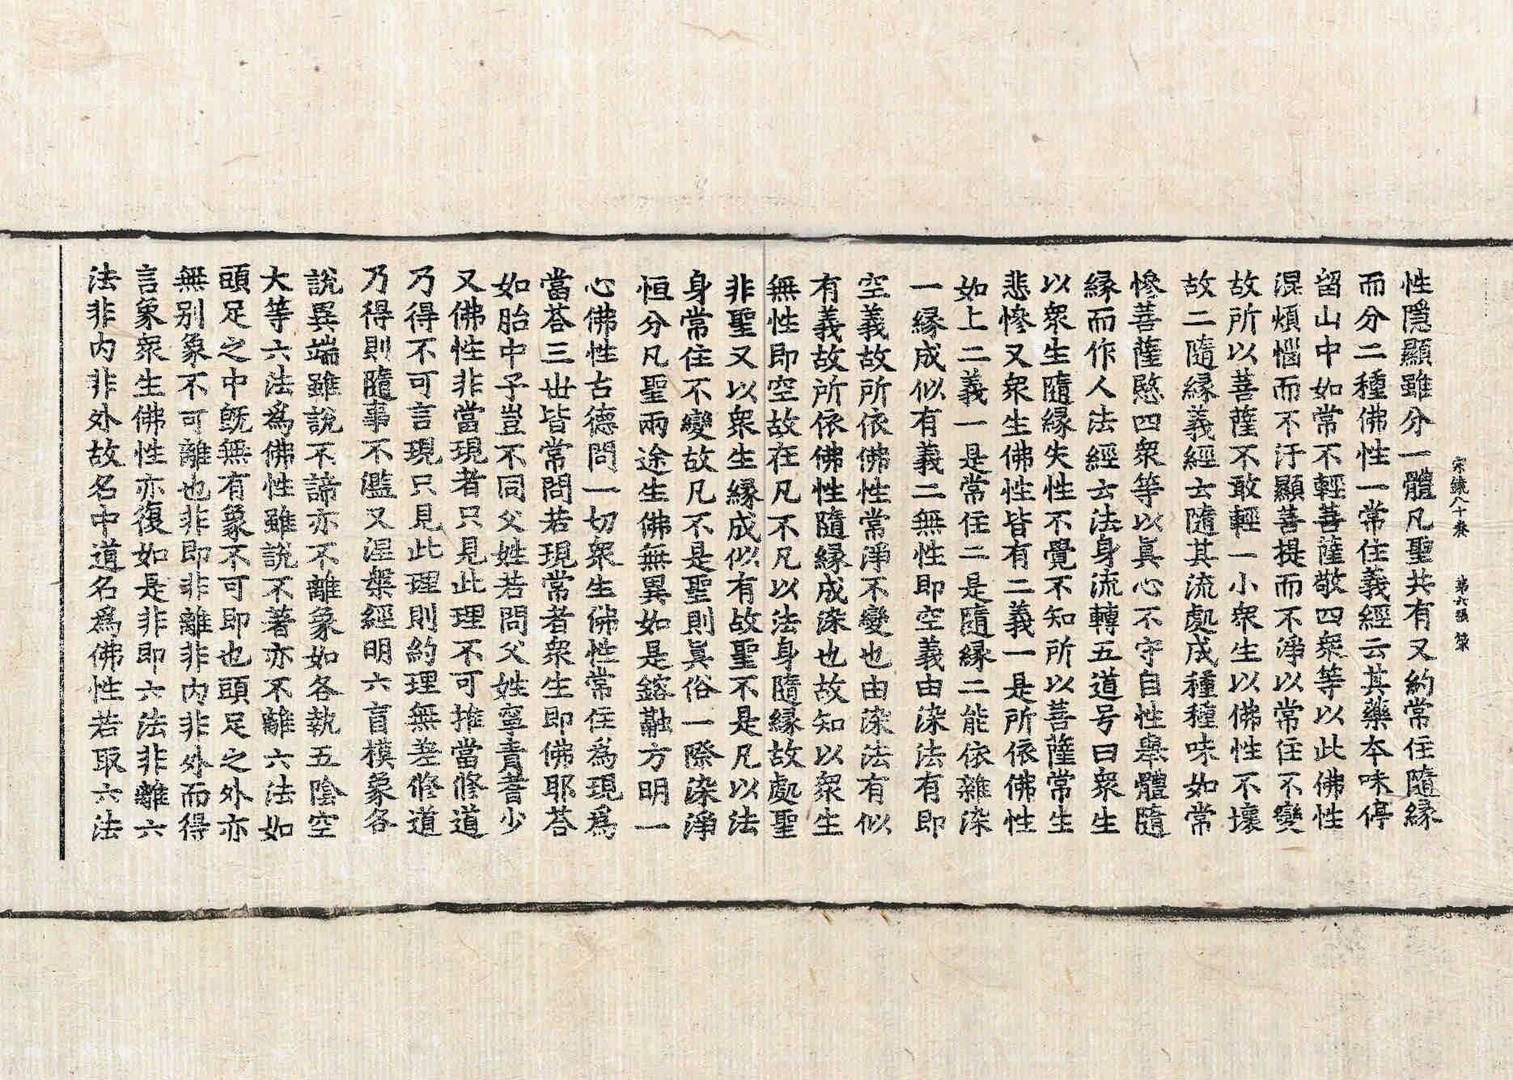 宗鏡八十卷 第六張 策
性隱顯雖分一體凡聖共有又約常住隨緣
而分二種佛性一常住義經云其藥本味停
留山中如常不輕菩薩敬四衆等以此佛性
混煩惱而不汙顯菩提而不淨以常住不變
故所以菩薩不敢輕一小衆生以佛性不壞
故二隨緣義經云隨其流處成種種味如常
慘菩薩愍四衆等以眞心不守自性舉體隨
緣而作人法經云法身流轉五道号曰衆生
以衆生隨緣失性不覺不知所以菩薩常生
悲慘又衆生佛性皆有二義一是所依佛性
如上二義一是常住二是隨緣二能依雜染
一緣成似有義二無性即空義由染法有即
空義故所依佛性常淨不變也由染法有似
有義故所依佛性隨緣成染也故知以衆生
無性即空故在凡不凡以法身隨緣故處聖
非聖又以衆生緣成似有故聖不是凡以法
身常住不變故凡不是聖則眞俗一際染淨
恒分凡聖兩途生佛無異如是鎔融方明一
心佛性古德問一切衆生佛性常住爲現爲
當荅三世皆常問若現常者衆生即佛耶荅
如胎中子豈不同父姓若問父姓寧責耆少
又佛性非當現者只見此理不可推當修道
乃得不可言現只見此理則約理無差修道
乃得則隨事不濫又涅槃經明六盲模象各
說異端雖說不諦亦不離象如各執五陰空
大等六法爲佛性雖說不著亦不離六法如
頭足之中旣無有象不可即也頭足之外亦
無別象不可離也非即非離非內非外而得
言象衆生佛性亦復如是非即六法非離六
法非內非外故名中道名爲佛性若取六法